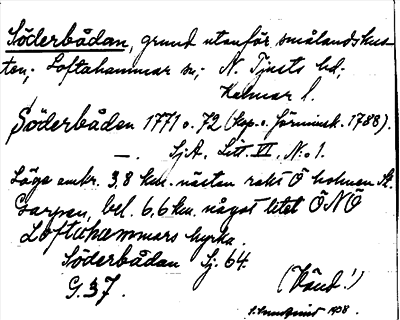 Söderbådan, grund utanför smålandskus-
ten; Loftahammar sn; N. Tjusts hd;
Kalmar l.
Söderbåden 1771 o. 72 (kop. o. förminsk. 1788).
—. Sj.A. Litt. VI, N:o 1.
Läge omkr. 3,8 km. nästan rakt Ö holmen St.
Garpen, bel. 6,6 km. något litet ÖNÖ
Loftahammars kyrka.
Söderbådan Sj. 64.
G. 37.
(Vänd!)
1908